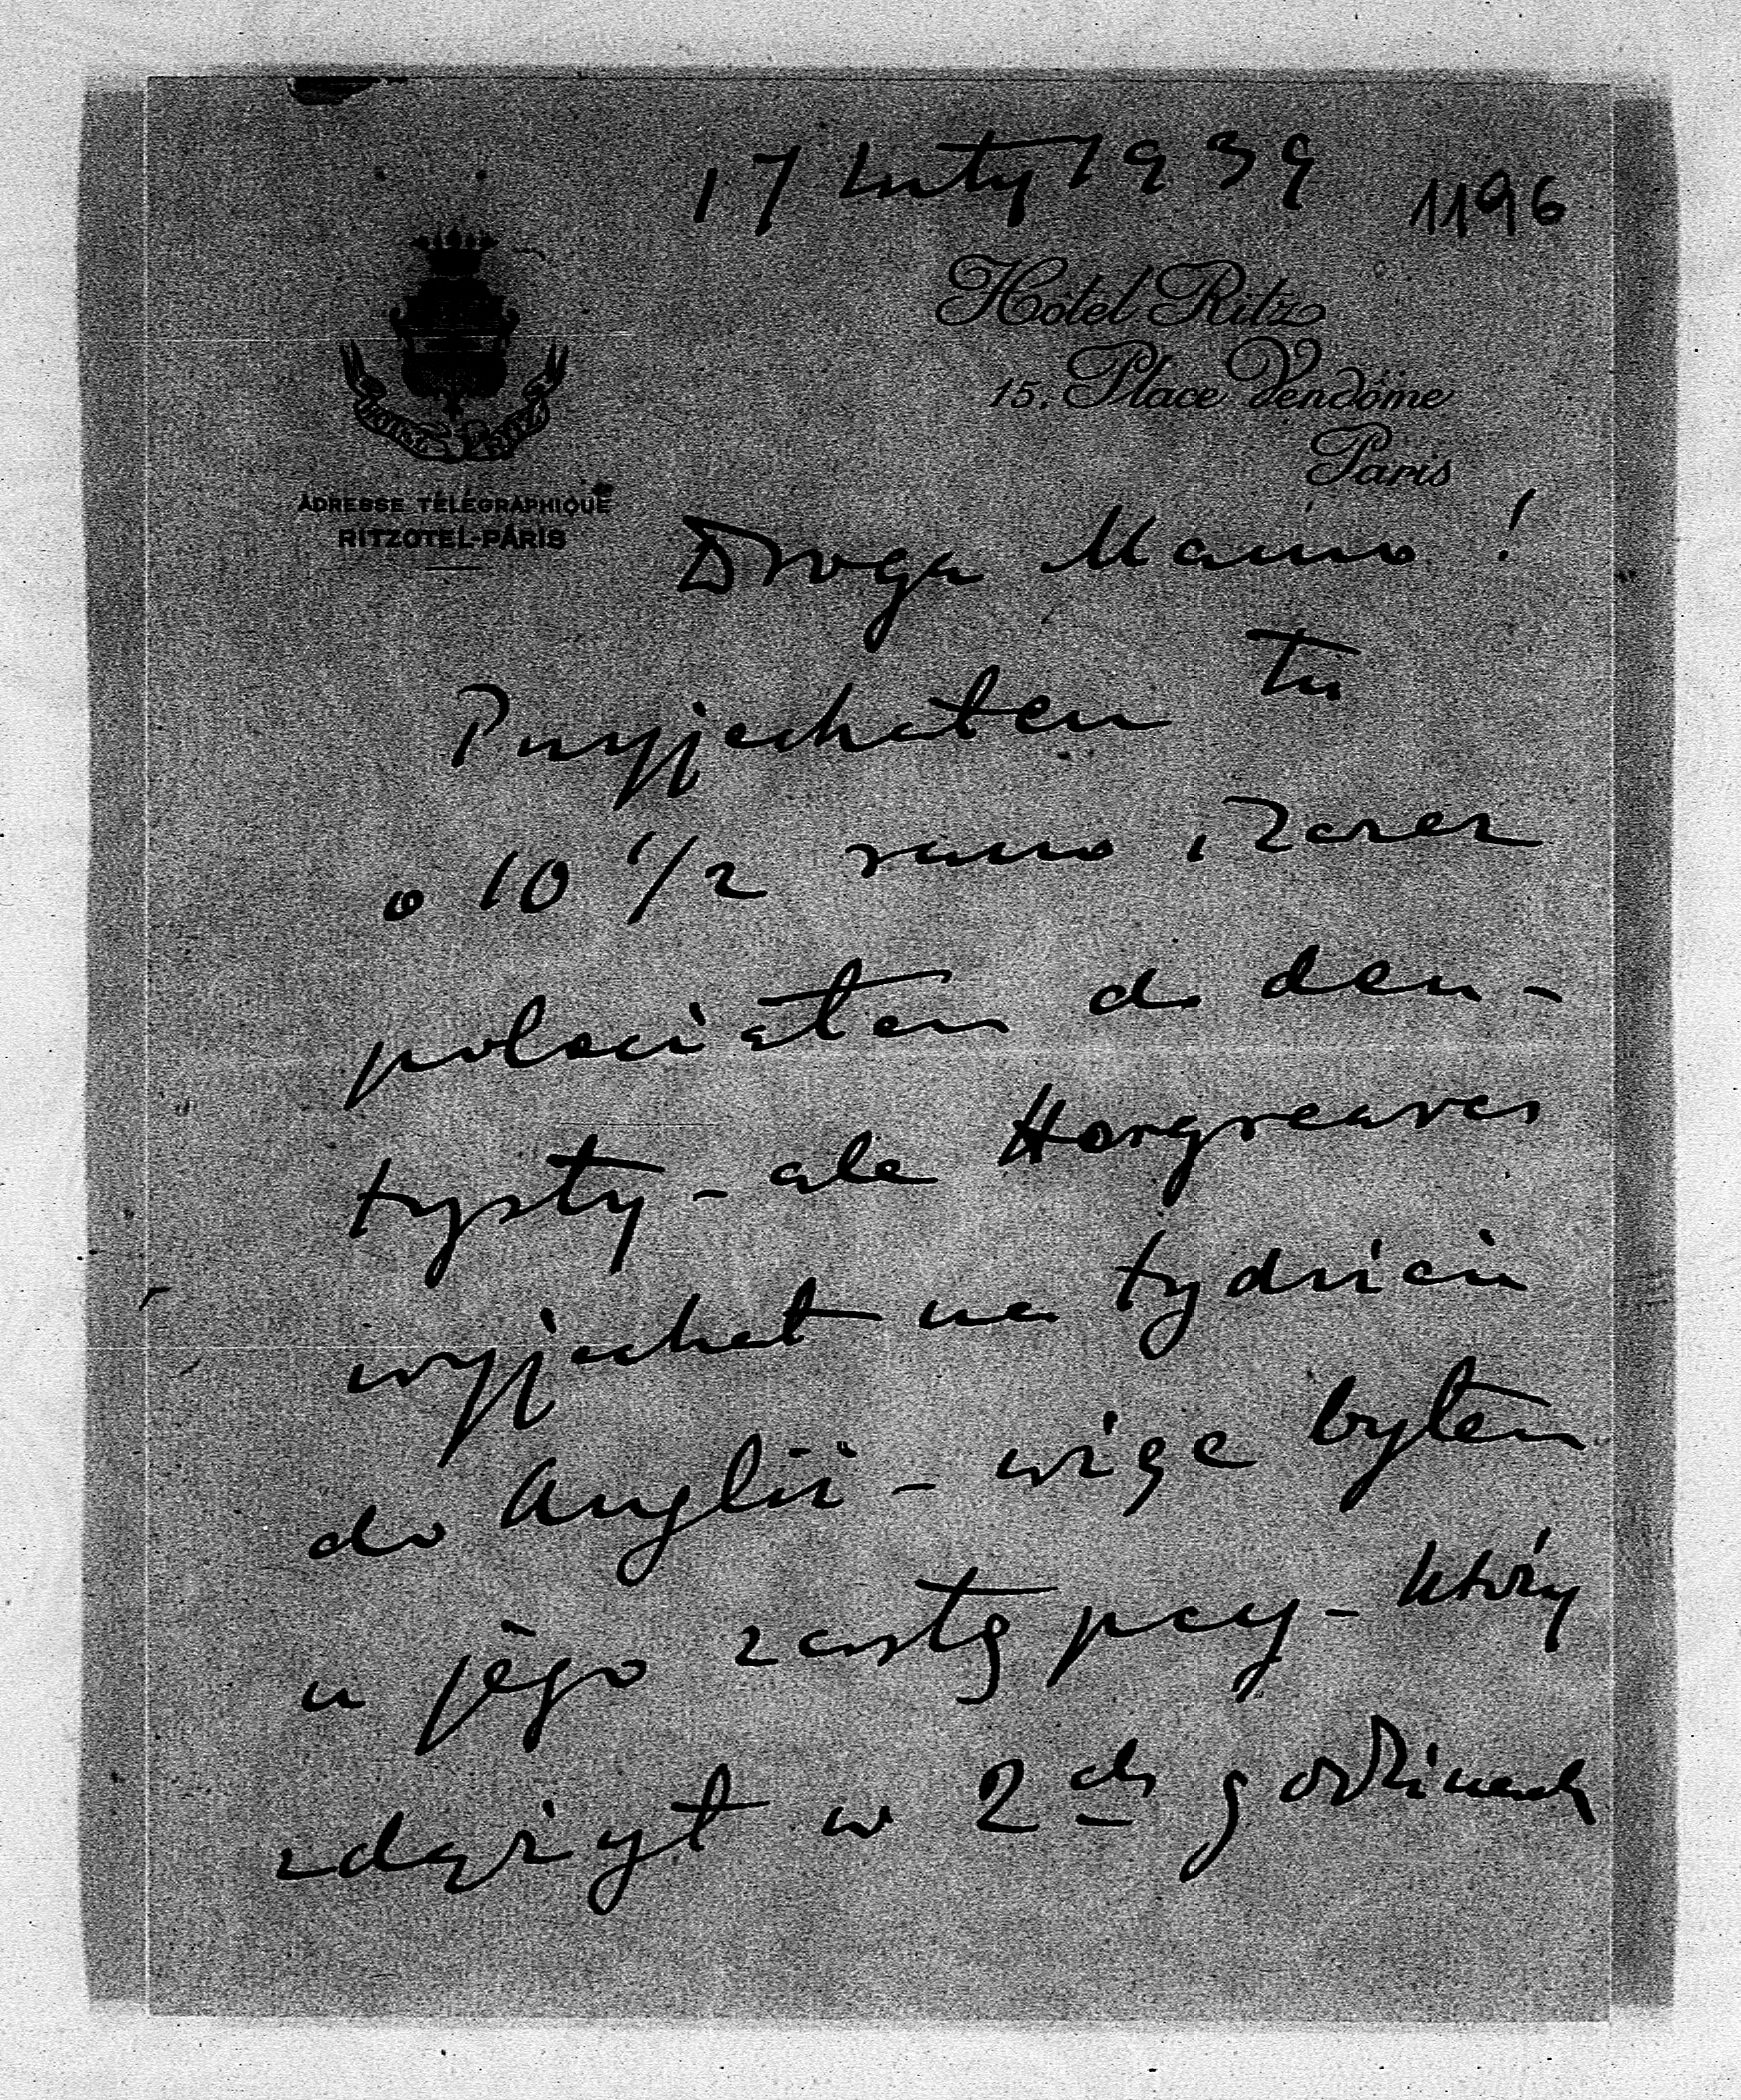 17 Luty 1939
1196
Hôtel Ritz
15, Place Vendôme
Paris
HOTEL RITZ
ADRESSE TÉLÉGRAPHIQUE
RITZOTEL-PARIS
Droga Mamo!
Przyjechałem tu
o 10 1/2 rano i zaraz
poleciałem do den-
tysty - ale Hargreaves
wyjechał na tydzień
do Anglii - więc byłem
u jego zastępcy - który
zdążył w 2ch godzinach